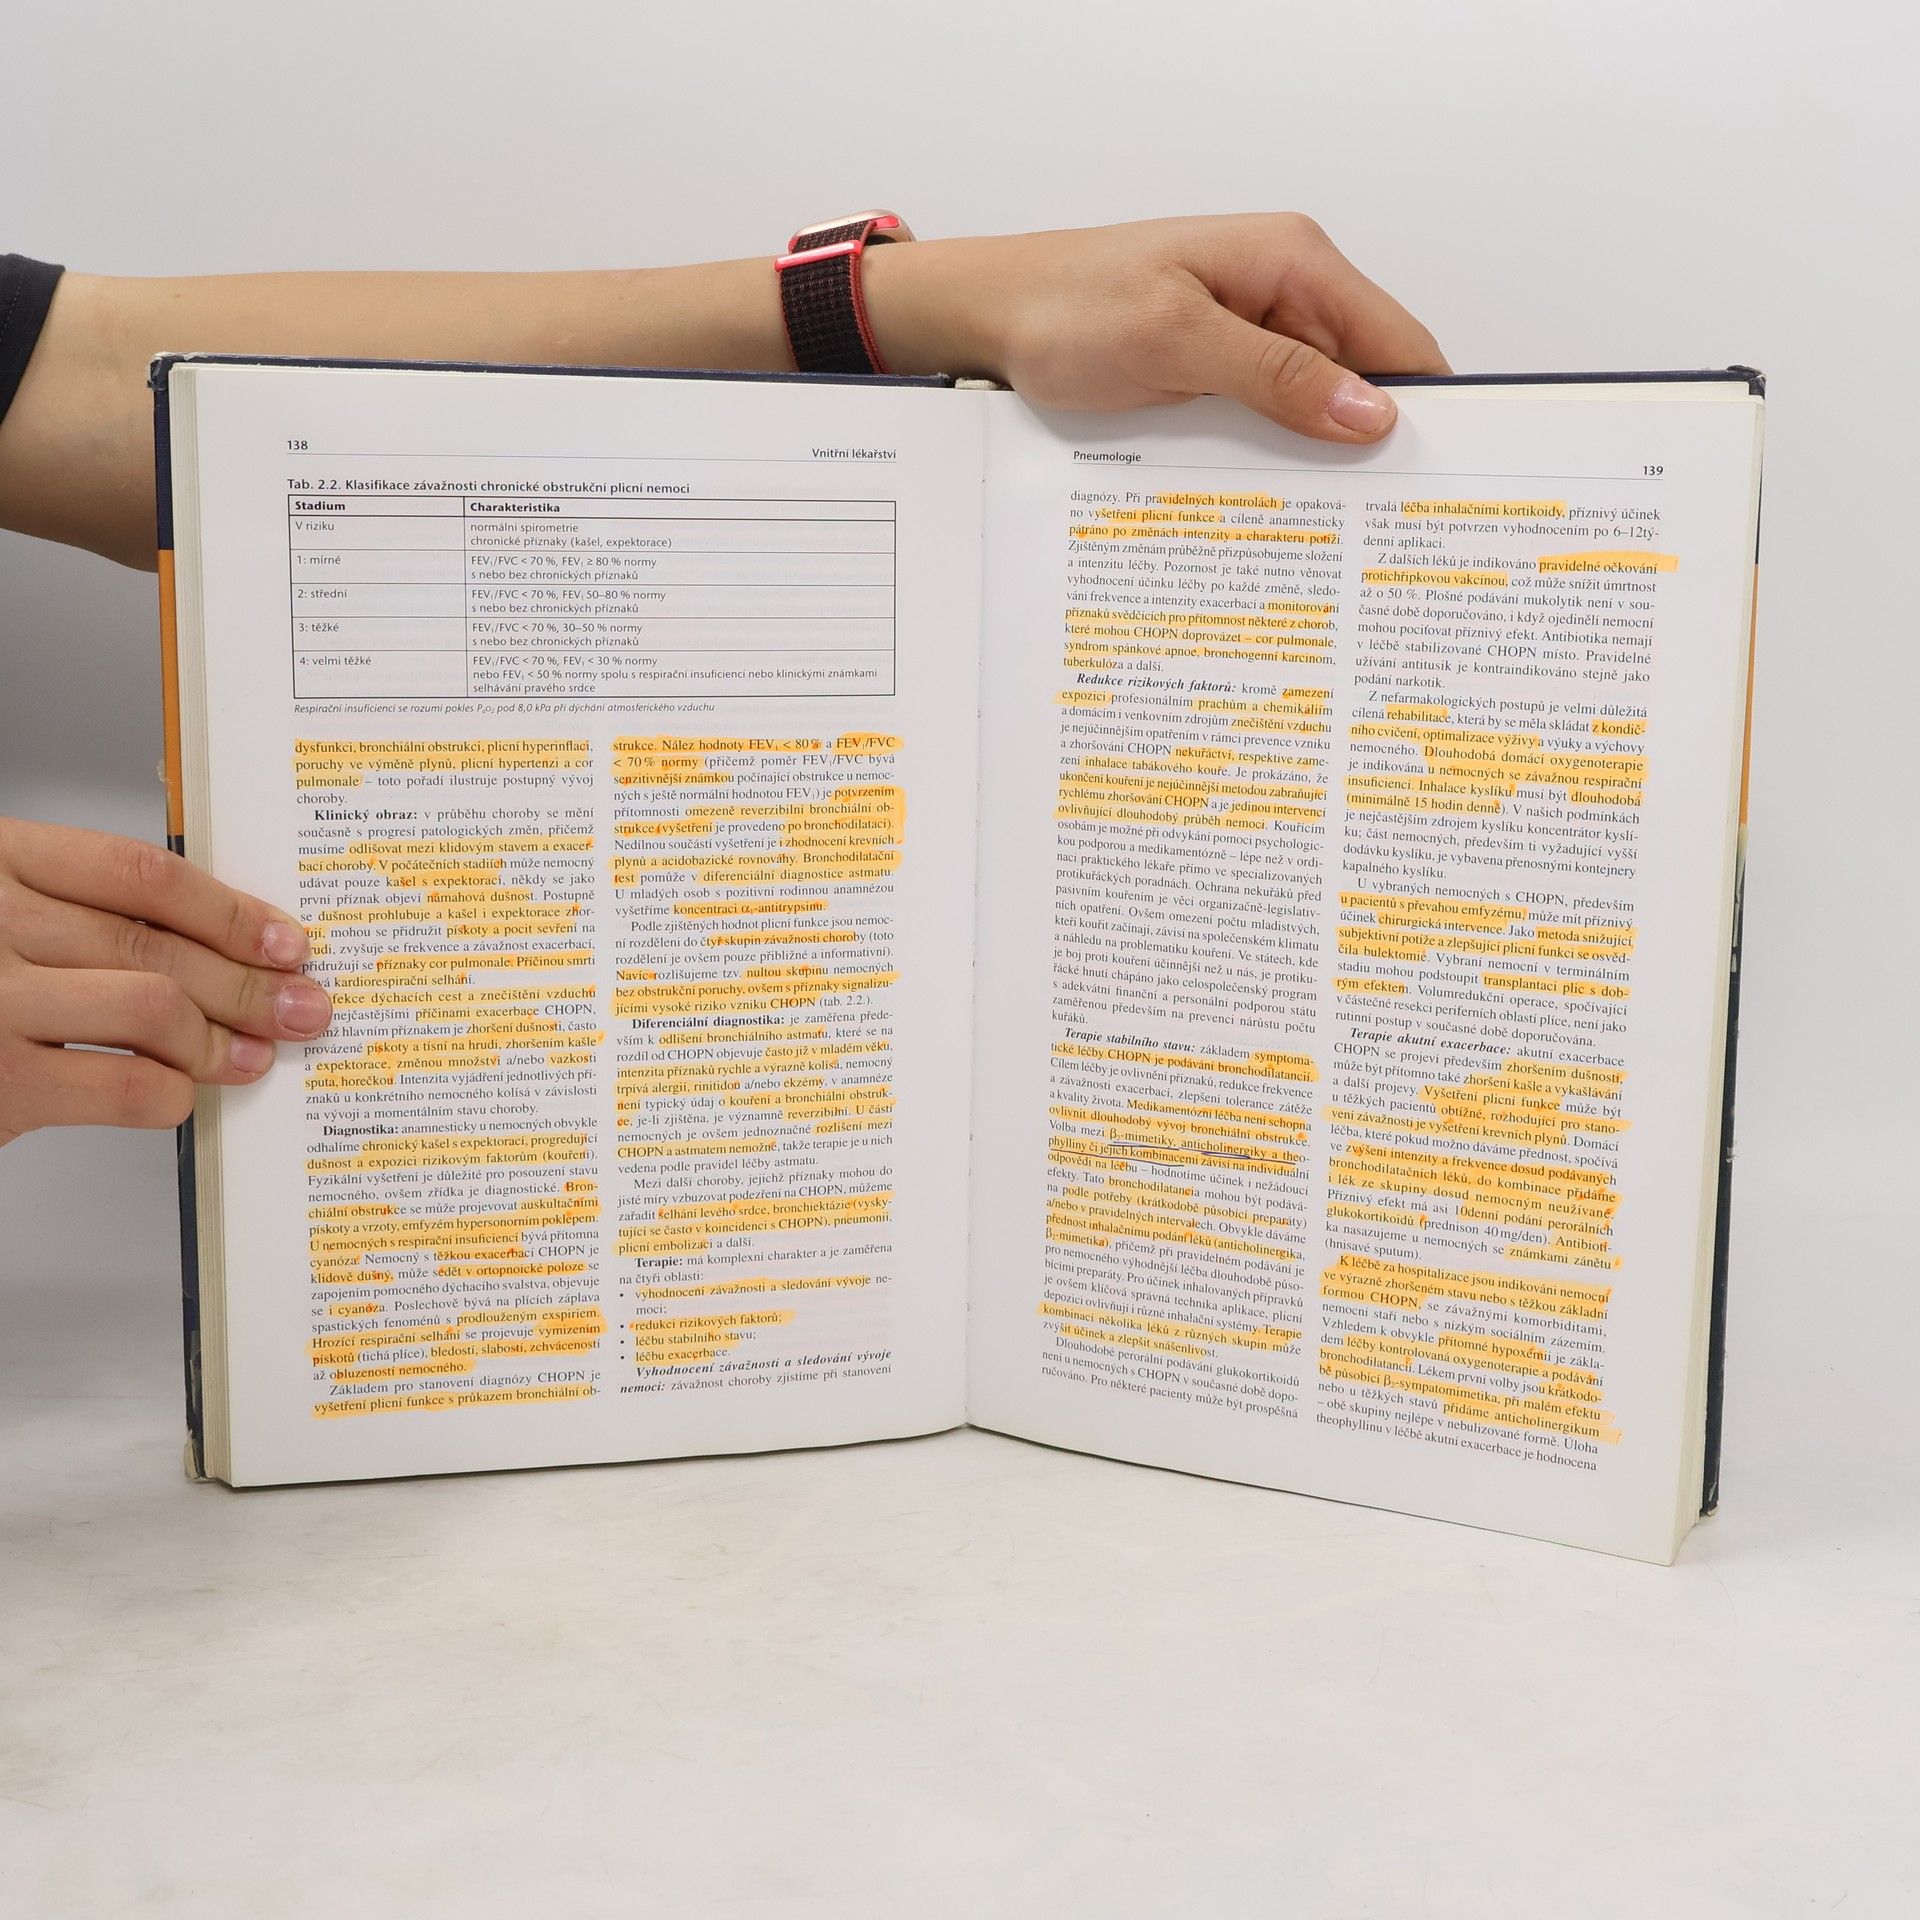 138
Vnitřní lékařství
Tab. 2.2. Klasifikace závažnosti chronické obstrukční plicní nemoci
Stadium Charakteristika
V riziku normální spirometrie
chronické příznaky (kašel, expektorace)
1: mírné FEV₁/FVC < 70 %, FEV₁ ≥ 80 % normy
s nebo bez chronických příznaků
2: střední FEV₁/FVC < 70 %, FEV₁ 50–80 % normy
s nebo bez chronických příznaků
3: těžké FEV₁/FVC < 70 %, 30–50 % normy
s nebo bez chronických příznaků
4: velmi těžké FEV₁/FVC < 70 %, FEV₁ < 30 % normy
nebo FEV₁ < 50 % normy spolu s respirační insuficiencí nebo klinickými známkami
selhávání pravého srdce
Respirační insuficiencí se rozumí pokles PₐO₂ pod 8,0 kPa při dýchání atmosferického vzduchu
dysfunkci, bronchiální obstrukci, plicní hyperinflaci,
poruchy ve výměně plynů, plicní hypertenzi a cor
pulmonale – toto pořadí ilustruje postupný vývoj
choroby.
Klinický obraz: v průběhu choroby se mění
současně s progresí patologických změn, přičemž
musíme odlišovat mezi klidovým stavem a exacer-
bací choroby. V počátečních stadiích může nemocný
udávat pouze kašel s expektorací, někdy se jako
první příznak objeví námahová dušnost. Postupně
se dušnost prohlubuje a kašel i expektorace zhor-
ují, mohou se přidružit pískoty a pocit sevření na
rudi, zvyšuje se frekvence a závažnost exacerbací,
přidružují se příznaky cor pulmonale. Příčinou smrti
vá kardiorespirační selhání.
fekce dýchacích cest a znečištění vzduchu
nejčastějšími příčinami exacerbace CHOPN,
mž hlavním příznakem je zhoršení dušnosti, často
provázené pískoty a tísní na hrudi, zhoršením kašle
a expektorace, změnou množství a/nebo vazkosti
sputa, horečkou. Intenzita vyjádření jednotlivých pří-
znaků u konkrétního nemocného kolísá v závislosti
na vývoji a momentálním stavu choroby.
Diagnostika: anamnesticky u nemocných obvykle
odhalíme chronický kašel s expektorací, progredující
dušnost a expozici rizikovým faktorům (kouření).
Fyzikální vyšetření je důležité pro posouzení stavu
nemocného, ovšem zřídka je diagnostické. Bron-
chiální obstrukce se může projevovat auskultačními
pískoty a vrzoty, emfyzém hypersonorním poklepem.
U nemocných s respirační insuficiencí bývá přítomna
cyanóza. Nemocný s těžkou exacerbací CHOPN je
klidově dušný, může sedět v ortopnoické poloze se
zapojením pomocného dýchacího svalstva, objevuje
se i cyanóza. Poslechově bývá na plících záplava
spastických fenoménů s prodlouženým exspiriem.
Hrozící respirační selhání se projevuje vymizením
pískotů (tichá plíce), bledostí, slabostí, zchváceností
až obluzeností nemocného.
Základem pro stanovení diagnózy CHOPN je
vyšetření plicní funkce s průkazem bronchiální ob-
strukce. Nález hodnoty FEV₁ < 80 % a FEV₁/FVC
< 70 % normy (přičemž poměr FEV₁/FVC bývá
senzitivnější známkou počínající obstrukce u nemoc-
ných s ještě normální hodnotou FEV₁) je potvrzením
přítomnosti omezeně reverzibilní bronchiální ob-
strukce (vyšetření je provedeno po bronchodilataci).
Nedílnou součástí vyšetření je i zhodnocení krevních
plynů a acidobazické rovnováhy. Bronchodilatační
test pomůže v diferenciální diagnostice astmatu.
U mladých osob s pozitivní rodinnou anamnézou
vyšetříme koncentraci α₁-antitrypsinu.
Podle zjištěných hodnot plicní funkce jsou nemoc-
ní rozděleni do čtyř skupin závažnosti choroby (toto
rozdělení je ovšem pouze přibližné a informativní).
Navíc rozlišujeme tzv. nultou skupinu nemocných
bez obstrukční poruchy, ovšem s příznaky signalizu-
jícími vysoké riziko vzniku CHOPN (tab. 2.2.).
Diferenciální diagnostika: je zaměřena přede-
vším k odlišení bronchiálního astmatu, které se na
rozdíl od CHOPN objevuje často již v mladém věku,
intenzita příznaků rychle a výrazně kolísá, nemocný
trpívá alergií, rinitidou a/nebo ekzémy, v anamnéze
není typický údaj o kouření a bronchiální obstruk-
ce, je-li zjištěna, je významně reverzibilní. U části
nemocných je ovšem jednoznačné rozlišení mezi
CHOPN a astmatem nemožné, takže terapie je u nich
vedena podle pravidel léčby astmatu.
Mezi další choroby, jejichž příznaky mohou do
jisté míry vzbuzovat podezření na CHOPN, můžeme
zařadit selhání levého srdce, bronchiektázie (vysky-
tující se často v koincidenci s CHOPN), pneumonii,
plicní embolizaci a další.
Terapie: má komplexní charakter a je zaměřena
na čtyři oblasti:
• vyhodnocení závažnosti a sledování vývoje ne-
moci;
• redukci rizikových faktorů;
• léčbu stabilního stavu;
• léčbu exacerbace.
Vyhodnocení závažnosti a sledování vývoje
nemoci: závažnost choroby zjistíme při stanovení
Pneumologie
139
diagnózy. Při pravidelných kontrolách je opaková-
no vyšetření plicní funkce a cíleně anamnesticky
pátráno po změnách intenzity a charakteru potíží.
Zjištěným změnám průběžně přizpůsobujeme složení
a intenzitu léčby. Pozornost je také nutno věnovat
vyhodnocení účinku léčby po každé změně, sledo-
vání frekvence a intenzity exacerbací a monitorování
příznaků svědčících pro přítomnost některé z chorob,
které mohou CHOPN doprovázet – cor pulmonale,
syndrom spánkové apnoe, bronchogenní karcinom,
tuberkulóza a další.
Redukce rizikových faktorů: kromě zamezení
expozici profesionálním prachům a chemikáliím
a domácím i venkovním zdrojům znečištění vzduchu
je nejúčinnějším opatřením v rámci prevence vzniku
a zhoršování CHOPN nekuřáctví, respektive zame-
zení inhalace tabákového kouře. Je prokázáno, že
ukončení kouření je nejúčinnější metodou zabraňující
rychlému zhoršování CHOPN a je jedinou intervencí
ovlivňující dlouhodobý průběh nemoci. Kouřícím
osobám je možné při odvykání pomoci psychologic-
kou podporou a medikamentózně – lépe než v ordi-
naci praktického lékaře přímo ve specializovaných
protikuřáckých poradnách. Ochrana nekuřáků před
pasivním kouřením je věcí organizačně-legislativ-
ních opatření. Ovšem omezení počtu mladistvých,
kteří kouřit začínají, závisí na společenském klimatu
a náhledu na problematiku kouření. Ve státech, kde
je boj proti kouření účinnější než u nás, je protiku-
řácké hnutí chápáno jako celospolečenský program
s adekvátní finanční a personální podporou státu
zaměřenou především na prevenci nárůstu počtu
kuřáků.
Terapie stabilního stavu: základem symptoma-
tické léčby CHOPN je podávání bronchodilatancií.
Cílem léčby je ovlivnění příznaků, redukce frekvence
a závažnosti exacerbací, zlepšení tolerance zátěže
a kvality života. Medikamentózní léčba není schopna
ovlivnit dlouhodobý vývoj bronchiální obstrukce.
Volba mezi β₂-mimetiky, anticholinergiky a theo-
phylliny či jejich kombinacemi závisí na individuální
odpovědi na léčbu – hodnotíme účinek i nežádoucí
efekty. Tato bronchodilatancia mohou být podává-
na podle potřeby (krátkodobě působící preparáty)
a/nebo v pravidelných intervalech. Obvykle dáváme
přednost inhalačnímu podání léků (anticholinergika,
β₂-mimetika), přičemž při pravidelném podávání je
pro nemocného výhodnější léčba dlouhodobě půso-
bícími preparáty. Pro účinek inhalovaných přípravků
je ovšem klíčová správná technika aplikace, plicní
depozici ovlivňují i různé inhalační systémy. Terapie
kombinací několika léků z různých skupin může
zvýšit účinek a zlepšit snášenlivost.
Dlouhodobé perorální podávání glukokortikoidů
není u nemocných s CHOPN v současné době dopo-
ručováno. Pro některé pacienty může být prospěšná
trvalá léčba inhalačními kortikoidy, příznivý účinek
však musí být potvrzen vyhodnocením po 6–12tý-
denní aplikaci.
Z dalších léků je indikováno pravidelné očkování
protichřipkovou vakcínou, což může snížit úmrtnost
až o 50 %. Plošné podávání mukolytik není v sou-
časné době doporučováno, i když ojedinělí nemocní
mohou pociťovat příznivý efekt. Antibiotika nemají
v léčbě stabilizované CHOPN místo. Pravidelné
užívání antitusik je kontraindikováno stejně jako
podání narkotik.
Z nefarmakologických postupů je velmi důležitá
cílená rehabilitace, která by se měla skládat z kondič-
ního cvičení, optimalizace výživy a výuky a výchovy
nemocného. Dlouhodobá domácí oxygenoterapie
je indikována u nemocných se závažnou respirační
insuficiencí. Inhalace kyslíku musí být dlouhodobá
(minimálně 15 hodin denně). V našich podmínkách
je nejčastějším zdrojem kyslíku koncentrátor kyslí-
ku; část nemocných, především ti vyžadující vyšší
dodávku kyslíku, je vybavena přenosnými kontejnery
kapalného kyslíku.
U vybraných nemocných s CHOPN, především
u pacientů s převahou emfyzému, může mít příznivý
účinek chirurgická intervence. Jako metoda snižující
subjektivní potíže a zlepšující plicní funkci se osvěd-
čila bulektomie. Vybraní nemocní v terminálním
stadiu mohou podstoupit transplantaci plic s dob-
rým efektem. Volumredukční operace, spočívající
v částečné resekci periferních oblastí plíce, není jako
rutinní postup v současné době doporučována.
Terapie akutní exacerbace: akutní exacerbace
CHOPN se projeví především zhoršením dušnosti,
může být přítomno také zhoršení kašle a vykašlávání
a další projevy. Vyšetření plicní funkce může být
u těžkých pacientů obtížné, rozhodující pro stano-
vení závažnosti je vyšetření krevních plynů. Domácí
léčba, které pokud možno dáváme přednost, spočívá
ve zvýšení intenzity a frekvence dosud podávaných
bronchodilatačních léků, do kombinace přidáme
i lék ze skupiny dosud nemocným neužívané.
Příznivý efekt má asi 10denní podání perorálních
glukokortikoidů (prednison 40 mg/den). Antibioti-
ka nasazujeme u nemocných se známkami zánětu
(hnisavé sputum).
K léčbě za hospitalizace jsou indikováni nemocní
ve výrazně zhoršeném stavu nebo s těžkou základní
formou CHOPN, se závažnými komorbiditami,
nemocní staří nebo s nízkým sociálním zázemím.
Vzhledem k obvykle přítomné hypoxémii je zákla-
dem léčby kontrolovaná oxygenoterapie a podávání
bronchodilatancií. Lékem první volby jsou krátkodo-
bě působící β₂-sympatomimetika, při malém efektu
nebo u těžkých stavů přidáme anticholinergikum
– obě skupiny nejlépe v nebulizované formě. Úloha
theophyllinu v léčbě akutní exacerbace je hodnocena